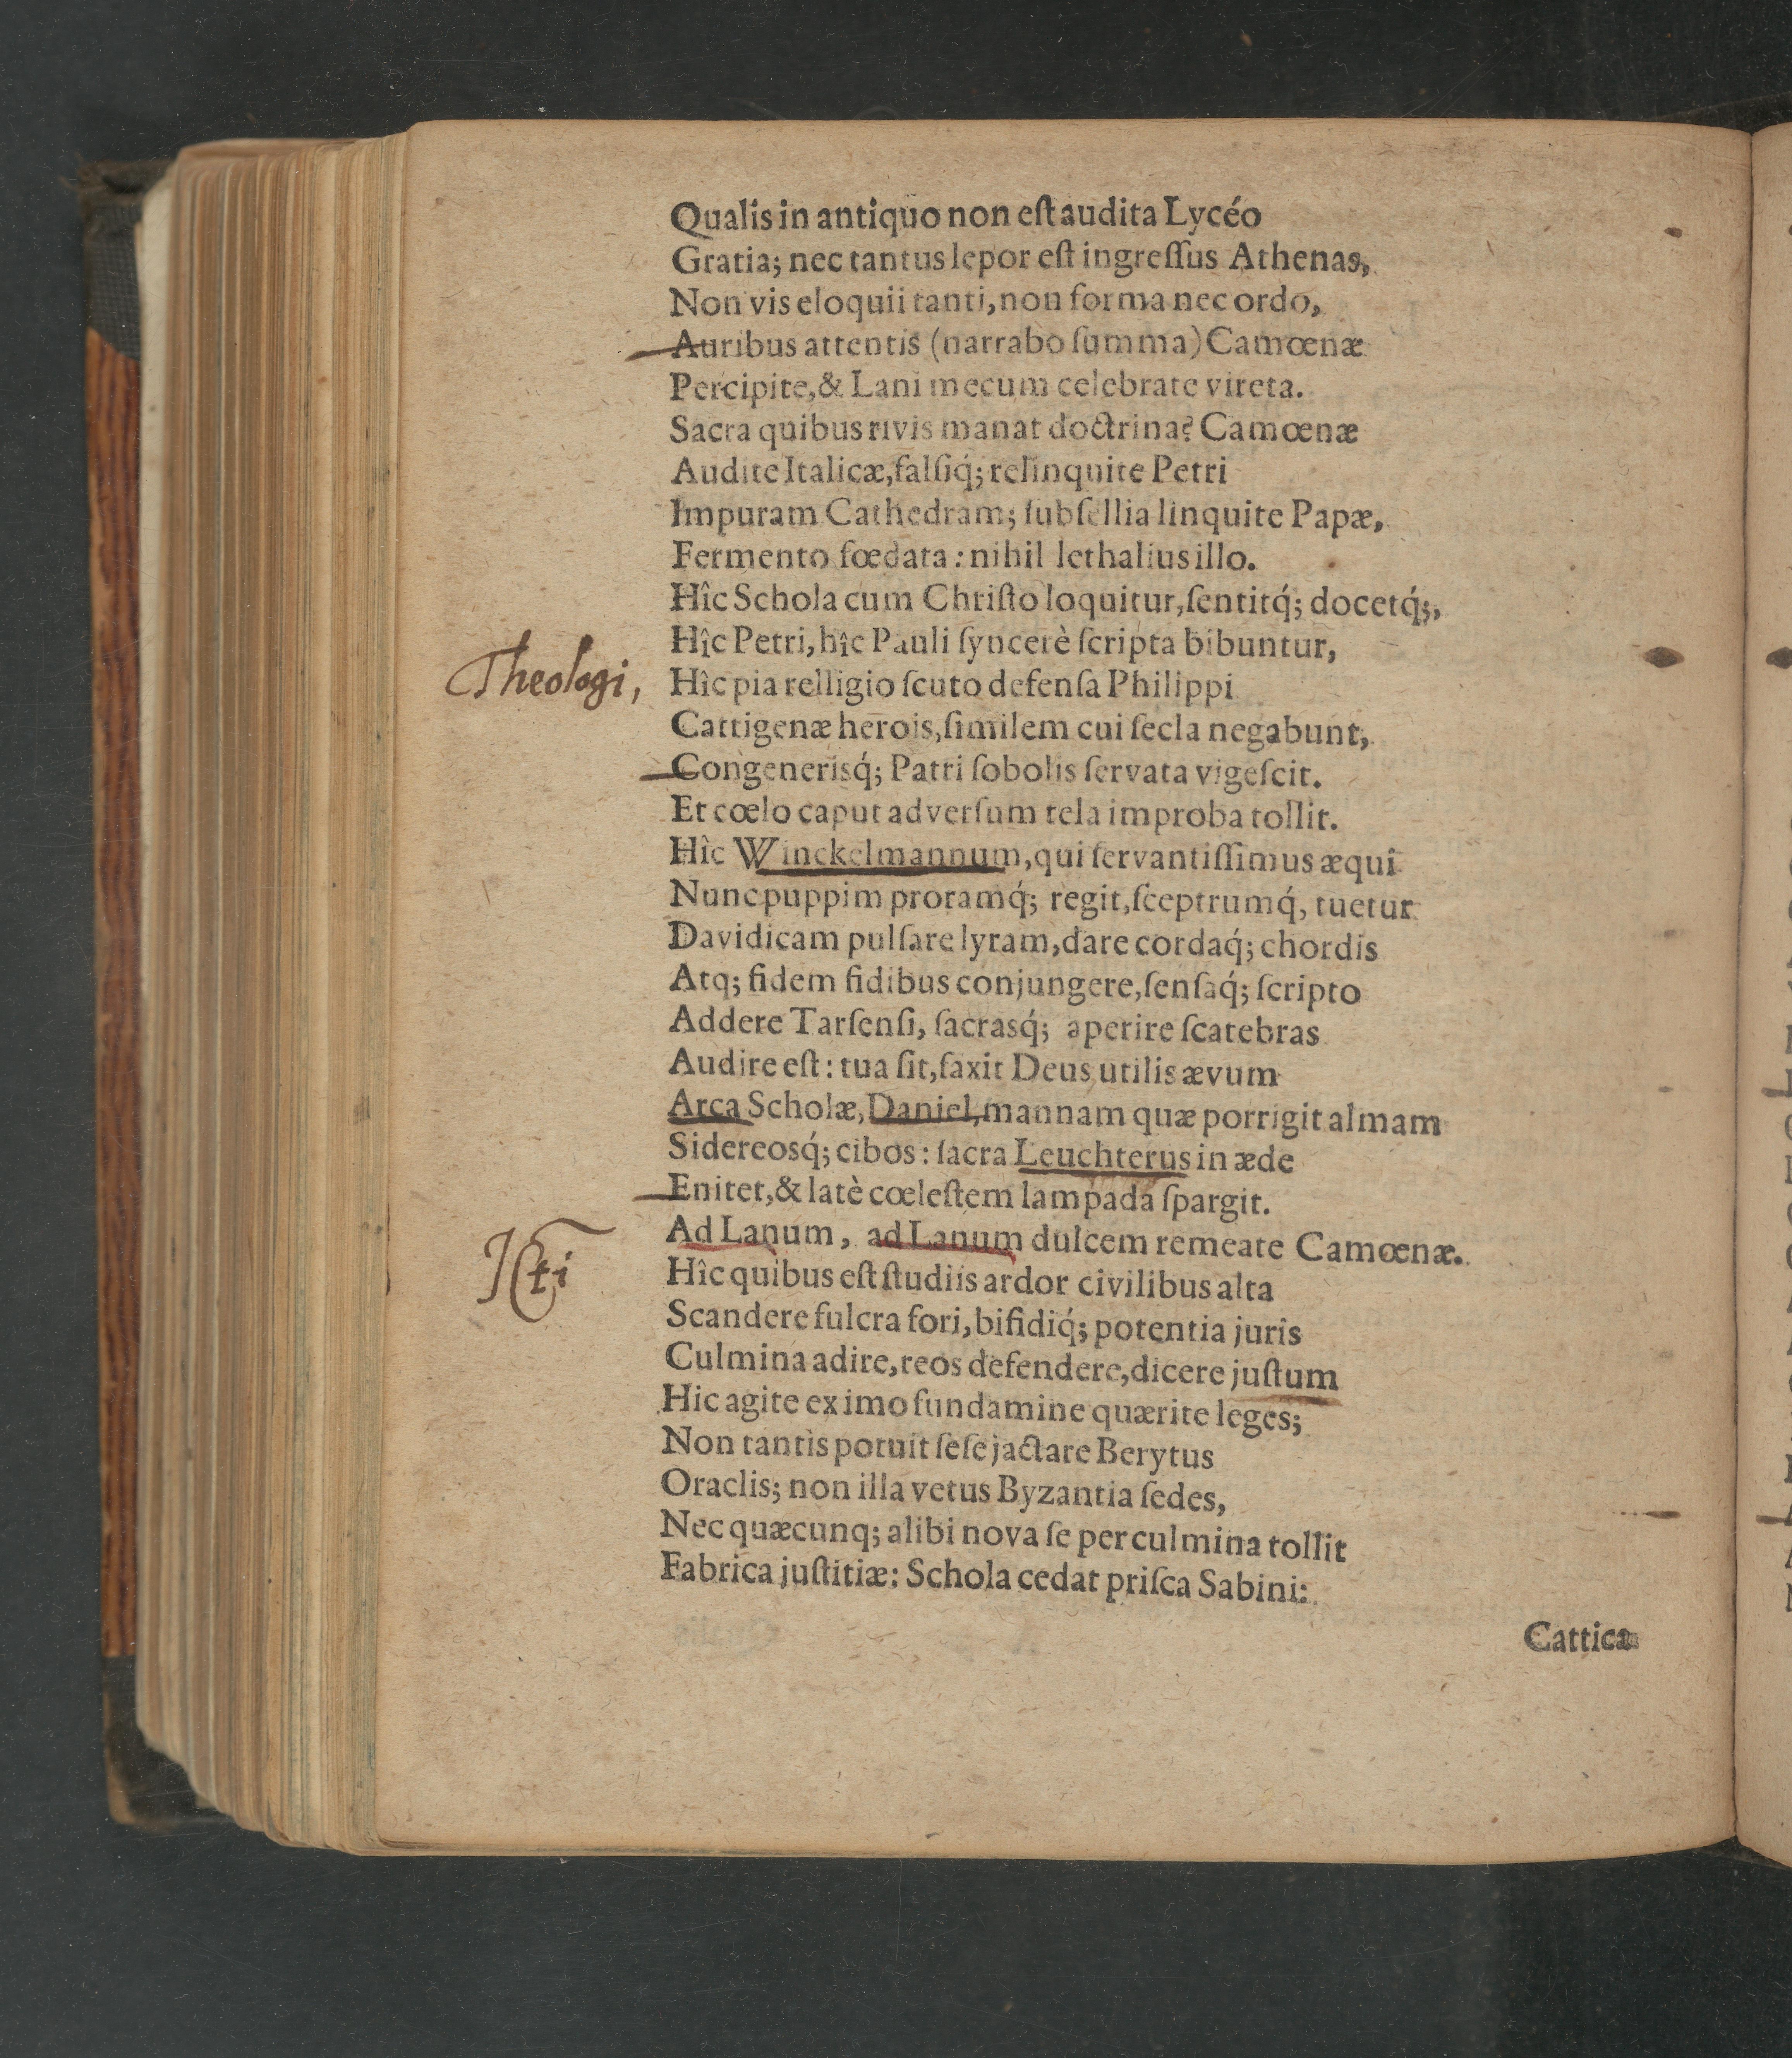 Qualis in antiquo non eſt audita Lycéo
Gratia; nec tantus lepor eſt ingreſſus Athenas,
Non vis eloquii tanti, non forma nec ordo,
Auribus attentis (narrabo ſumma) Camœnæ
Percipite, & Lani mecum celebrate vireta.
Sacra quibus rivis manat doctrina? Camœnæ
Audite Italicæ, falſiq́; relinquite Petri
Impuram Cathedram; ſubſellia linquite Papæ,
Fermento fœdata: nihil lethalius illo.
Hîc Schola cum Chriſto loquitur, ſentitq́; docetq́;,
Hîc Petri, hîc Pauli ſyncerè ſcripta bibuntur,
Theologi, Hîc pia relligio ſcuto defenſa Philippi
Cattigenæ herois, ſimilem cui ſecla negabunt,
Congenerisq́; Patri ſobolis ſervata vigeſcit.
Et cœlo caput adverſum tela improba tollit.
Hîc Winckelmannum, qui ſervantiſſimus æqui
Nunc puppim proramq́; regit, ſceptrumq́, tuetur
Davidicam pulſare lyram, dare cordaq́; chordis
Atq; fidem fidibus conjungere, ſenſaq́; ſcripto
Addere Tarſenſi, ſacrasq́; aperire ſcatebras
Audire eſt: tua ſit, faxit Deus utilis ævum
Arca Scholæ, Daniel, mannam quæ porrigit almam
Sidereosq́; cibos: ſacra Leuchterus in æde
Enitet, & latè cœleſtem lampada ſpargit.
Ad Lanum, ad Lanum dulcem remeate Camœnæ.
JCti Hîc quibus eſt ſtudiis ardor civilibus alta
Scandere fulcra fori, bifidiq́; potentia juris
Culmina adire, reos defendere, dicere juſtum
Hic agite ex imo fundamine quærite leges;
Non tantis potuit ſeſe jactare Berytus
Oraclis; non illa vetus Byzantia ſedes,
Nec quæcunq; alibi nova ſe per culmina tollit
Fabrica juſtitiæ: Schola cedat priſca Sabini:
Cattica